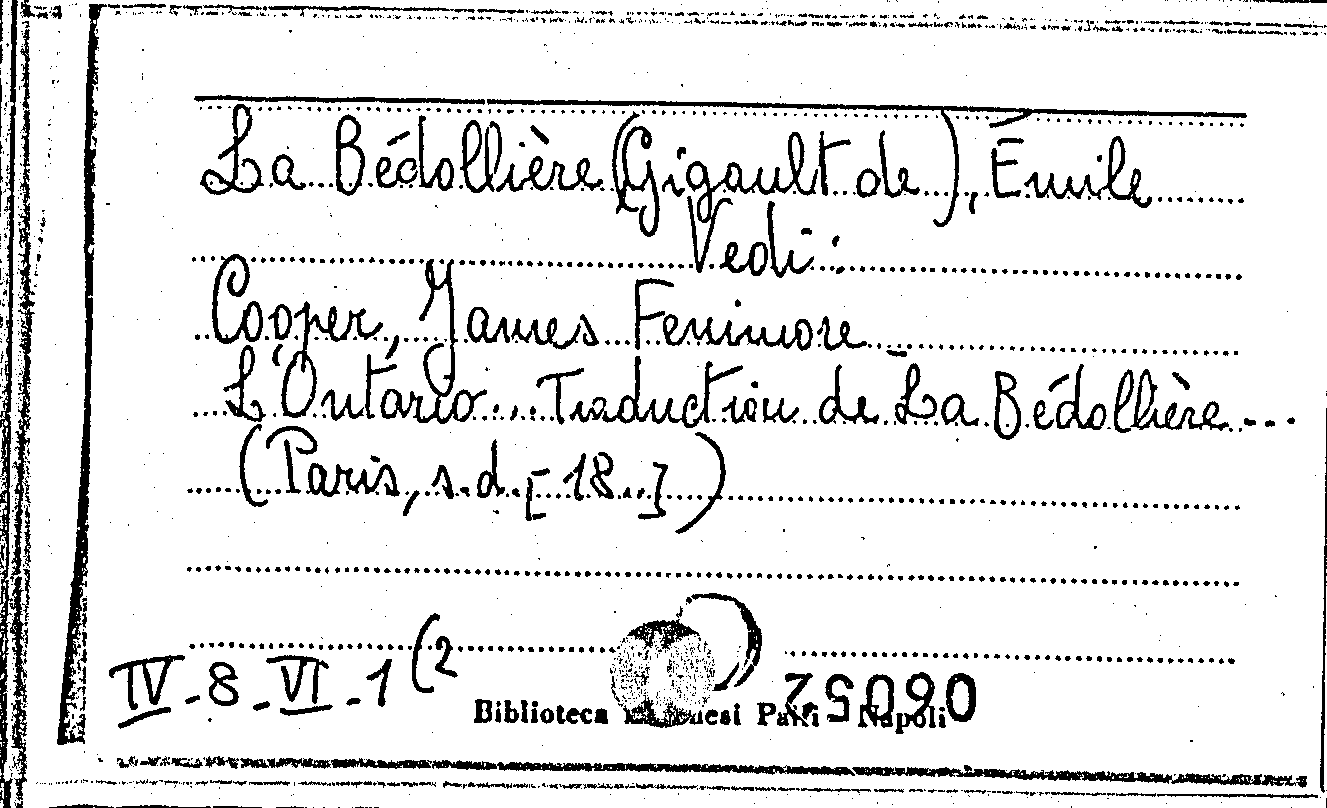 La Bédollière (Gigault de), Émile
Vedi:
Cooper, James Fenimore
L'Ontário... Traduction de La Bédollière...
(Paris, s.d. [18..])
IV-8-VI-1(2
Biblioteca Napoli